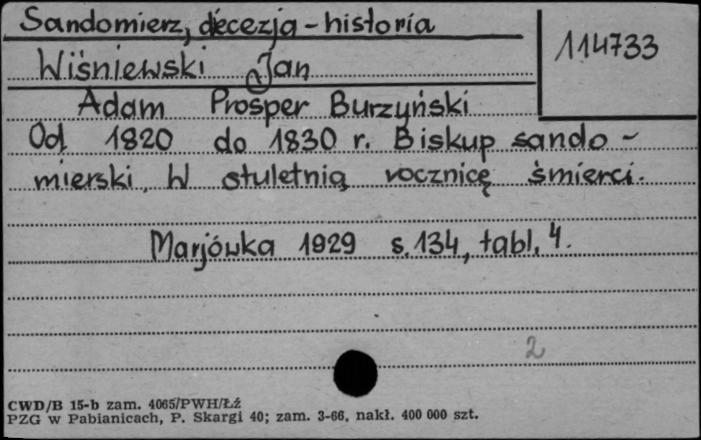 Sandomierz, diecezja - historia
114733
Wiśniewski Jan
Adam Prosper Burzyński
Od 1820 do 1830 r. Biskup sando-
mierski. W stuletnią rocznicę śmierci.
Marjówka 1929 s. 134, tabl. 4.
2
CWD/B 15-b zam. 4065/PWH/Łź
PZG w Pabianicach, P. Skargi 40; zam. 3-66, nakł. 400 000 szt.